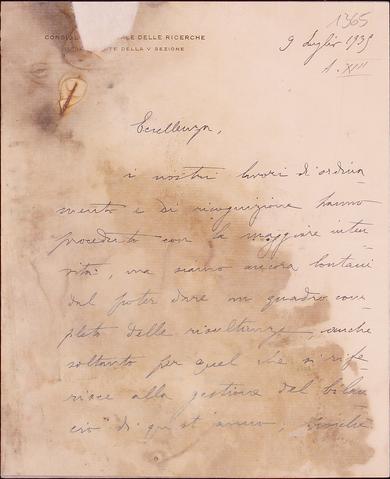 1365
CONSIGL LE DELLE RICERCHE
TE DELLA V SEZIONE
9 Luglio 1935
A. XIII
Eccellenza,
i nostri lavori di ordina-
mento e di ricognizione hanno
proceduto con la maggiore inten-
sità, ma siamo ancora lontani
dal poter dare un quadro com-
pleto delle risultanze, anche
soltanto per quel che si rife-
risce alla gestione del bilan-
cio di quest'anno,